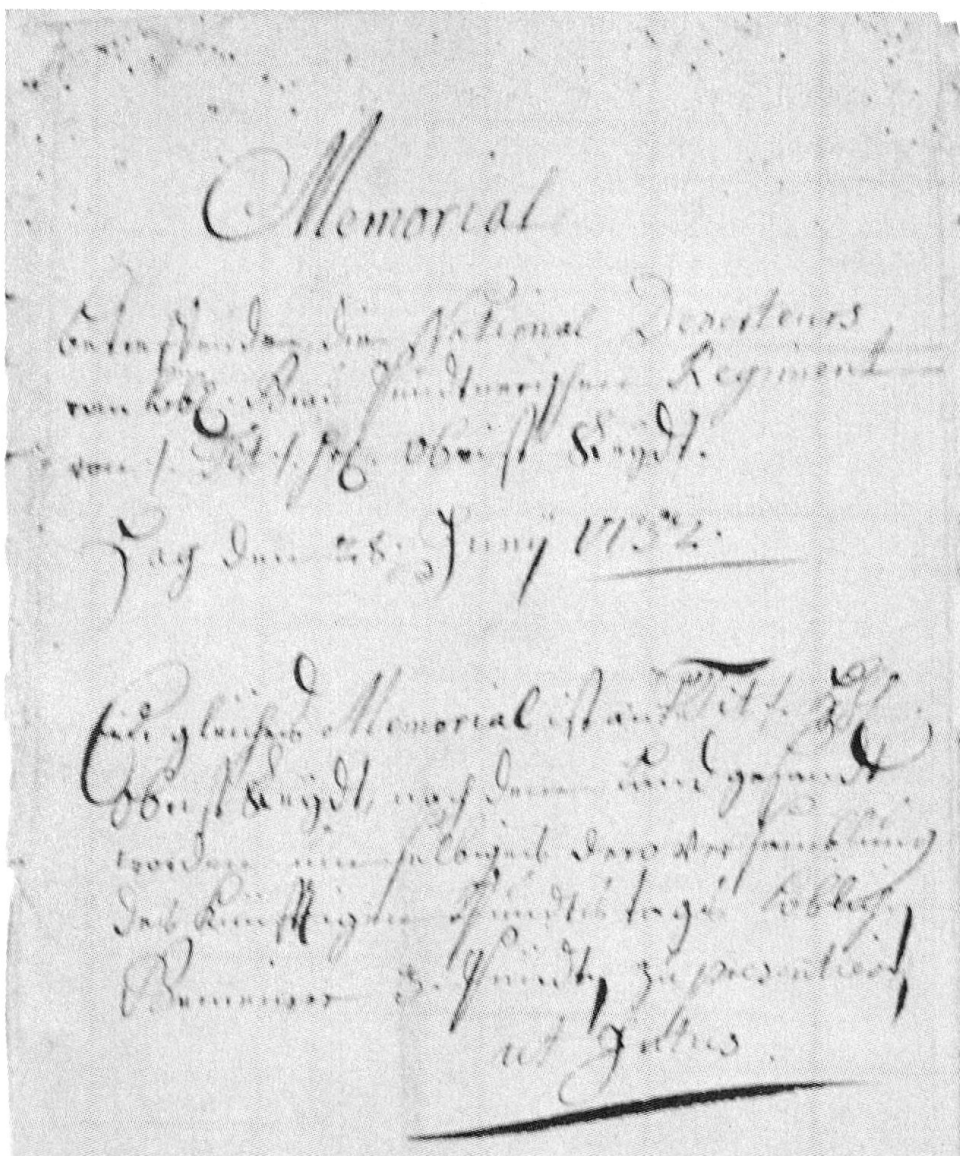 Memorial
betreffenden die National Deserteurs
von Pündtnerischen Regiment
von Tit. Obrist
Hag den 28. Juny 1732.
Ein gleiches Memorial ist an Tit.
Obrist nach dem Land gesandt
worden um selbiges dero versamblung
des künfftigen Pundtstags Loblich.
Gemeiner 3. Pündten zu presentieren
ut Intus.